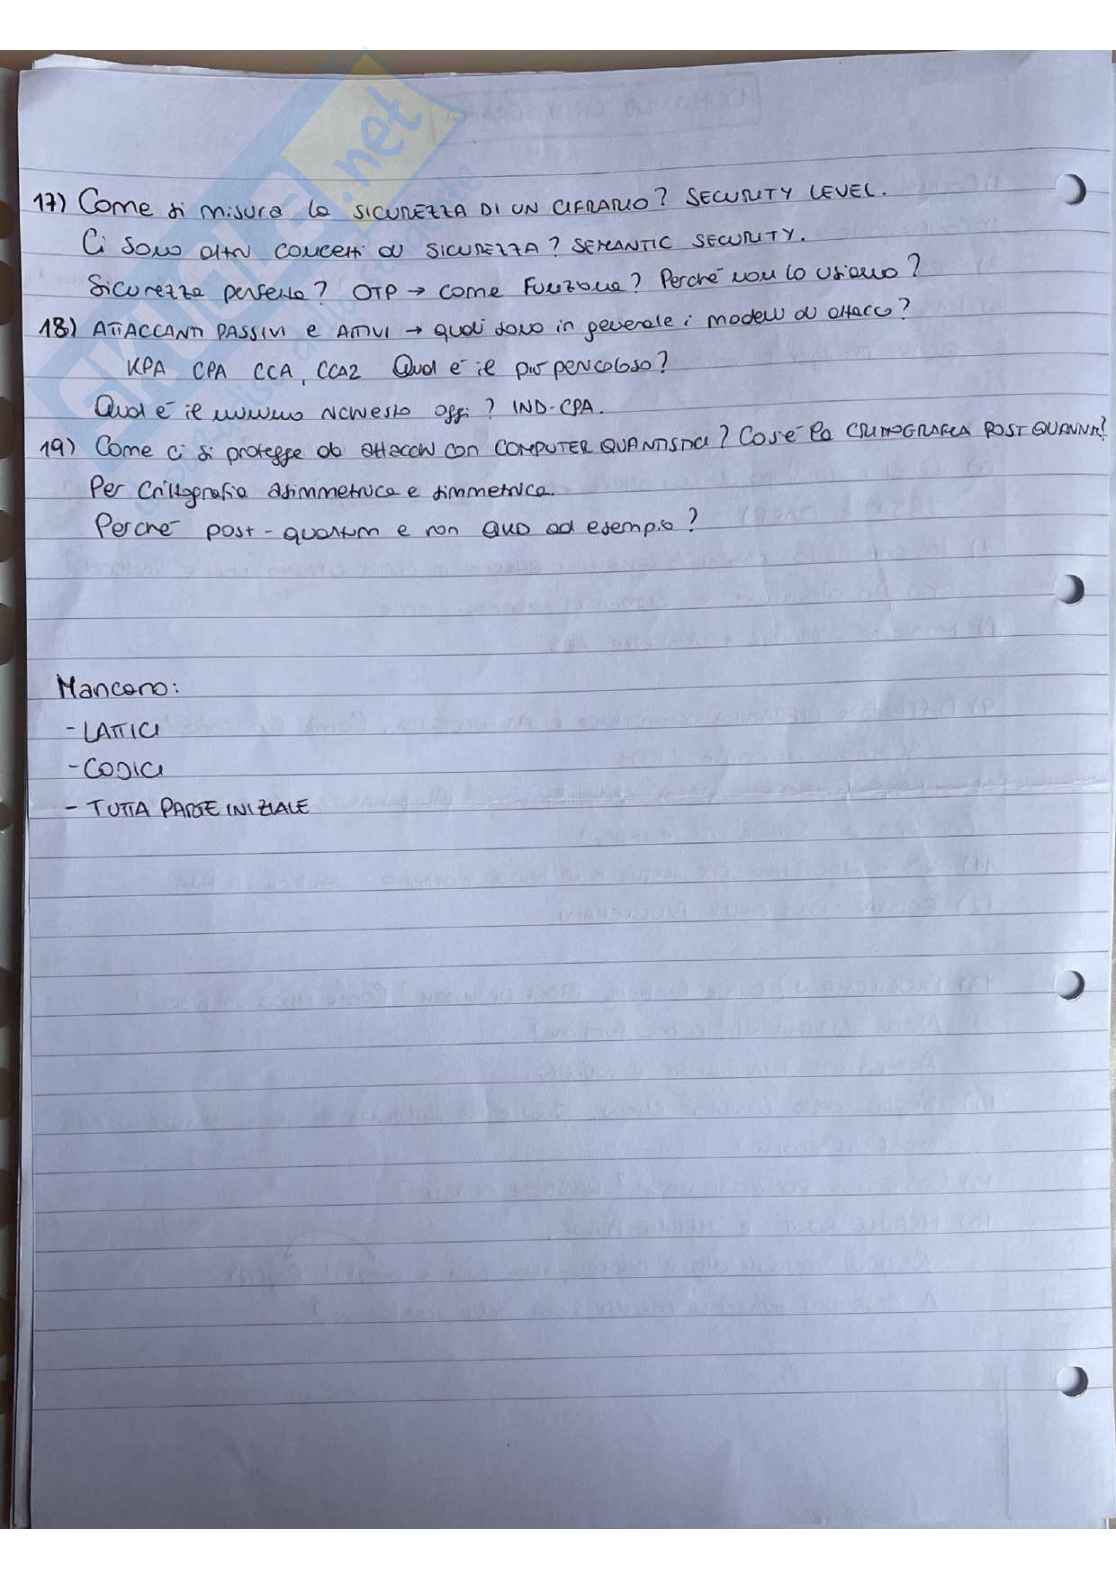 17) Come si misura la SICUREZZA DI UN CIFRARIO? SECURITY LEVEL.
Ci sono altri concetti di SICUREZZA? SEMANTIC SECURITY.
Sicurezza perfetta? OTP → come Funziona? Perchè non lo usiamo?
18) ATTACCANTI PASSIVI e ATTIVI → quali sono in generale i modelli di attacco?
KPA CPA CCA, CCA2 Qual è il più pericoloso?
Qual è il minimo richiesto oggi? IND-CPA.
19) Come ci si protegge da attacchi con COMPUTER QUANTISTICI? Cos'è la CRITTOGRAFIA POST QUANTUM?
Per Crittografia asimmetrica e simmetrica.
Perchè post-quantum e non QKD ad esempio?
Mancano:
- LATTICI
- CODICI
- TUTTA PARTE INIZIALE
SKUOLA.net